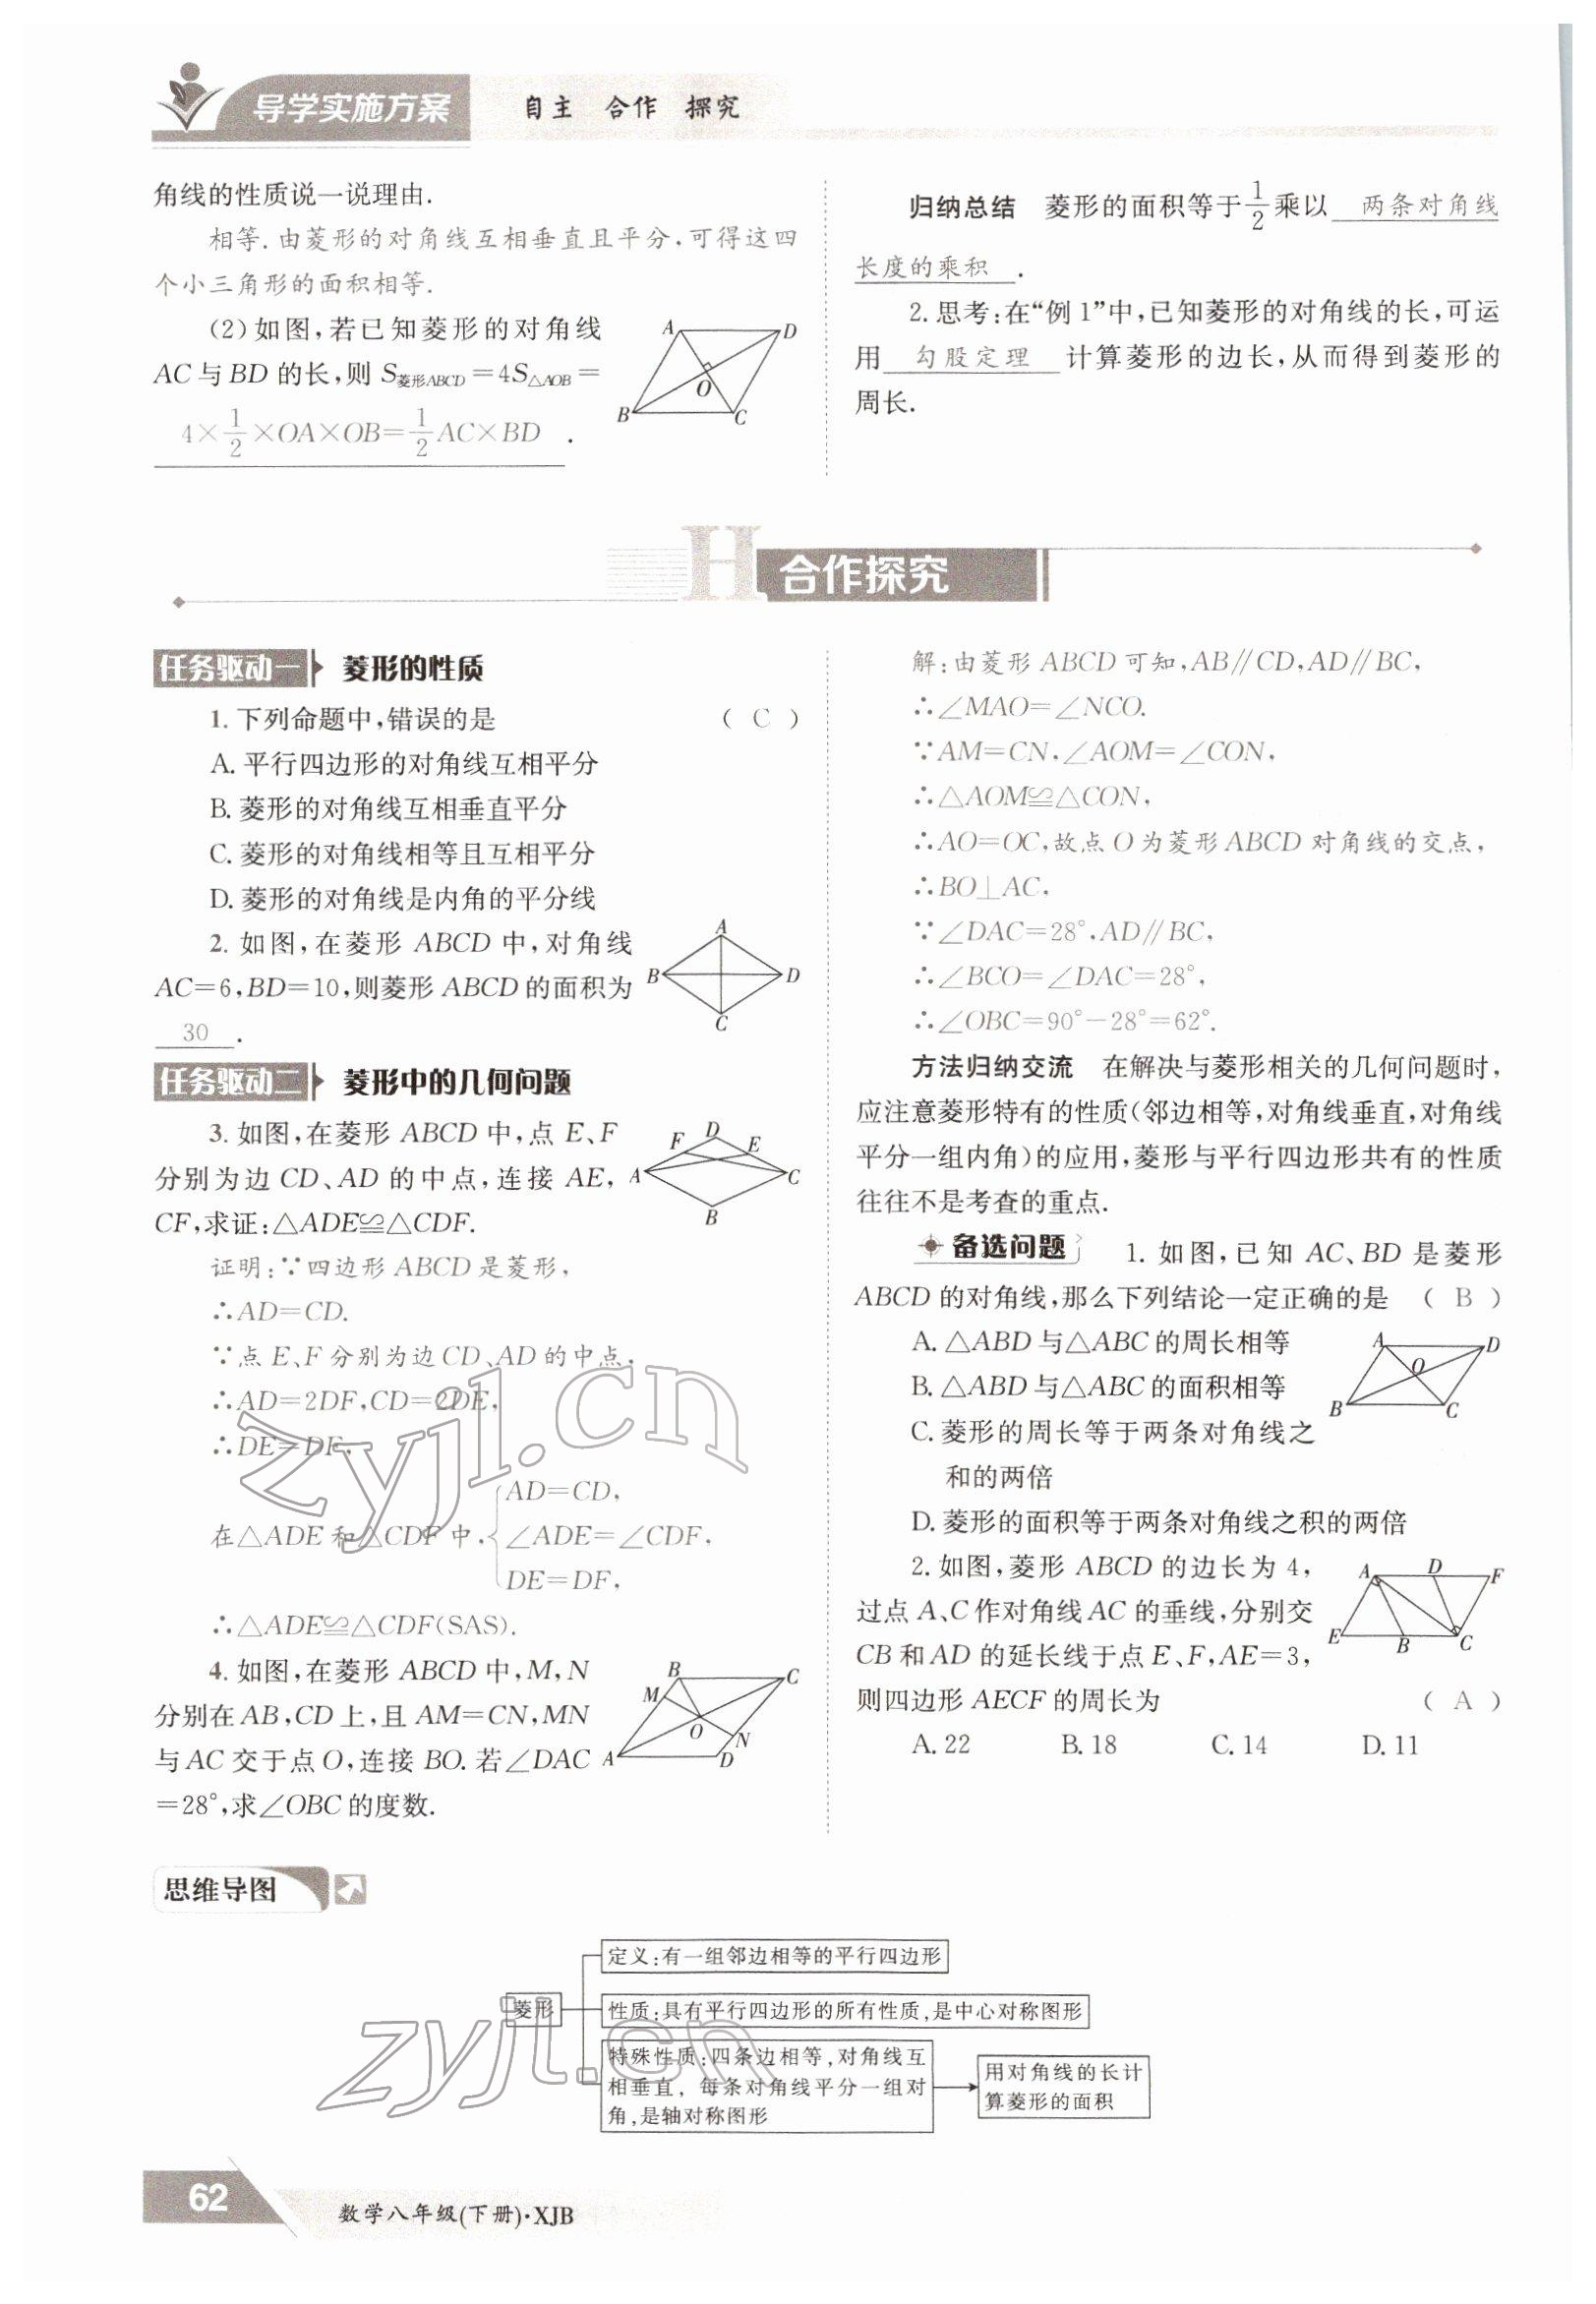 导学实施方案
自主 合作 探究
角线的性质说一说理由.
相等.由菱形的对角线互相垂直且平分,可得这四
个小三角形的面积相等.
(2)如图,若已知菱形的对角线
AC与BD的长,则S菱形ABCD=4S△AOB=
4×1/2×OA×OB=1/2AC×BD .
A
D
O
B
C
归纳总结 菱形的面积等于1/2乘以 两条对角线
长度的乘积 .
2.思考:在“例1”中,已知菱形的对角线的长,可运
用 勾股定理 计算菱形的边长,从而得到菱形的
周长.
H 合作探究
任务驱动一 菱形的性质
1.下列命题中,错误的是 ( C )
A.平行四边形的对角线互相平分
B.菱形的对角线互相垂直平分
C.菱形的对角线相等且互相平分
D.菱形的对角线是内角的平分线
2.如图,在菱形ABCD中,对角线
AC=6,BD=10,则菱形ABCD的面积为
30 .
A
B
D
C
任务驱动二 菱形中的几何问题
3.如图,在菱形ABCD中,点E、F
分别为边CD、AD的中点,连接AE,
CF,求证:△ADE≌△CDF.
D
F
E
A
C
B
证明:∵四边形ABCD是菱形,
∴AD=CD.
∵点E、F分别为边CD、AD的中点,
∴AD=2DF,CD=2DE,
∴DE=DF,
在△ADE和△CDF中,{AD=CD,
∠ADE=∠CDF,
DE=DF,
∴△ADE≌△CDF(SAS).
4.如图,在菱形ABCD中,M,N
分别在AB,CD上,且AM=CN,MN
与AC交于点O,连接BO.若∠DAC
=28°,求∠OBC的度数.
B
C
M
O
N
A
D
解:由菱形ABCD可知,AB∥CD,AD∥BC,
∴∠MAO=∠NCO.
∵AM=CN,∠AOM=∠CON,
∴△AOM≌△CON,
∴AO=OC,故点O为菱形ABCD对角线的交点,
∴BO⊥AC,
∵∠DAC=28°,AD∥BC,
∴∠BCO=∠DAC=28°,
∴∠OBC=90°-28°=62°.
方法归纳交流 在解决与菱形相关的几何问题时,
应注意菱形特有的性质(邻边相等,对角线垂直,对角线
平分一组内角)的应用,菱形与平行四边形共有的性质
往往不是考查的重点.
备选问题 1.如图,已知AC、BD是菱形
ABCD的对角线,那么下列结论一定正确的是 ( B )
A.△ABD与△ABC的周长相等
B.△ABD与△ABC的面积相等
C.菱形的周长等于两条对角线之
和的两倍
D.菱形的面积等于两条对角线之积的两倍
A
D
O
B
C
2.如图,菱形ABCD的边长为4,
过点A、C作对角线AC的垂线,分别交
CB和AD的延长线于点E、F,AE=3,
则四边形AECF的周长为 ( A )
A.22 B.18 C.14 D.11
A
D
F
E
B
C
思维导图
菱形
定义:有一组邻边相等的平行四边形
性质:具有平行四边形的所有性质,是中心对称图形
特殊性质:四条边相等,对角线互
相垂直,每条对角线平分一组对
角,是轴对称图形
用对角线的长计
算菱形的面积
zyjl.cn
zyjl.cn
62
数学八年级(下册)·XJB